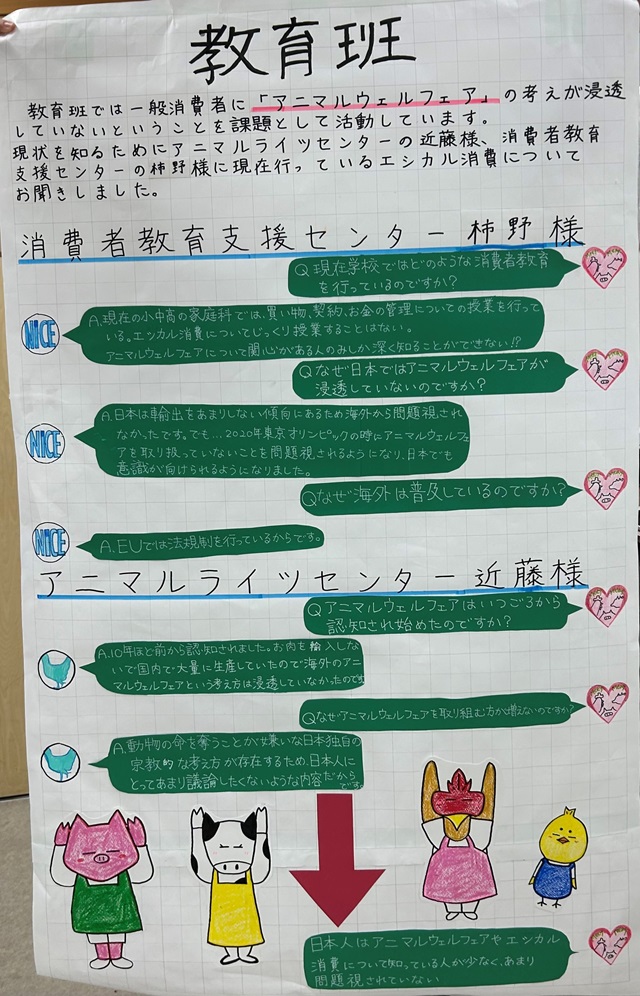 教育班
教育班では一般消費者に「アニマルウェルフェア」の考えが浸透
していないということを課題として活動しています。
現状を知るためにアニマルライツセンターの近藤様、消費者教育
支援センターの柿野様に現在行っているエシカル消費について
お聞きしました。
消費者教育支援センター柿野様
Q現在学校ではどのような消費者教育
を行っているのですか?
NICE
A.現在の小中高の家庭科では、買い物、契約、お金の管理についての授業を行って
いる。エシカル消費についてじっくり授業することはない。
アニマルウェルフェアについて関心がある人のみしか深く知ることができない!?
Qなぜ日本ではアニマルウェルフェアが
浸透していないのですか?
NICE
A.日本は輸出をあまりしない傾向にあるため海外から問題視され
なかったです。でも…2020年東京オリンピックの時にアニマルウェルフェ
アを取り扱っていないことを問題視されるようになり、日本でも
意識が向けられるようになりました。
Qなぜ海外は普及しているのですか?
NICE
A.EUでは法規制を行っているからです。
アニマルライツセンター近藤様
Qアニマルウェルフェアはいつごろから
認知され始めたのですか?
A.10年ほど前から認知されました。お肉を輸入しな
いで国内で大量に生産していたので海外のアニ
マルウェルフェアという考え方は浸透していなかったのです
Qなぜアニマルウェルフェアを取り組む方が増えないのですか?
A.動物の命を奪うことが嫌いな日本独自の
宗教的な考え方が存在するため、日本人に
とってあまり議論したくないような内容だから
です
日本人はアニマルウェルフェアやエシカル
消費について知っている人が少なく、あまり
問題視されていない